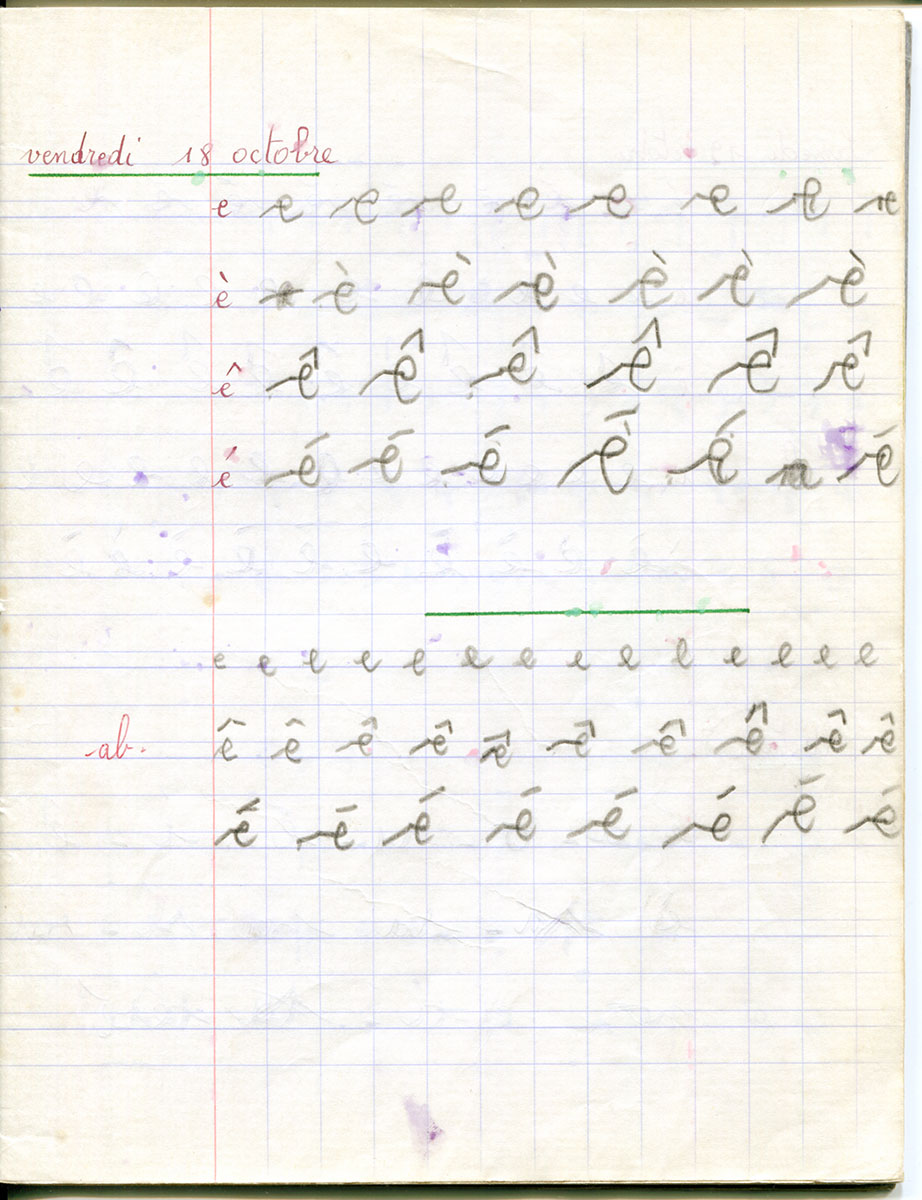 vendredi 18 octobre
e e e e e e e e e
è è è è è è è
ê ê ê ê ê ê ê
é é é é é é é
e e e e e e e e e e e e e e
ab. ê ê ê ê ê ê ê ê ê ê
é é é é é é é é